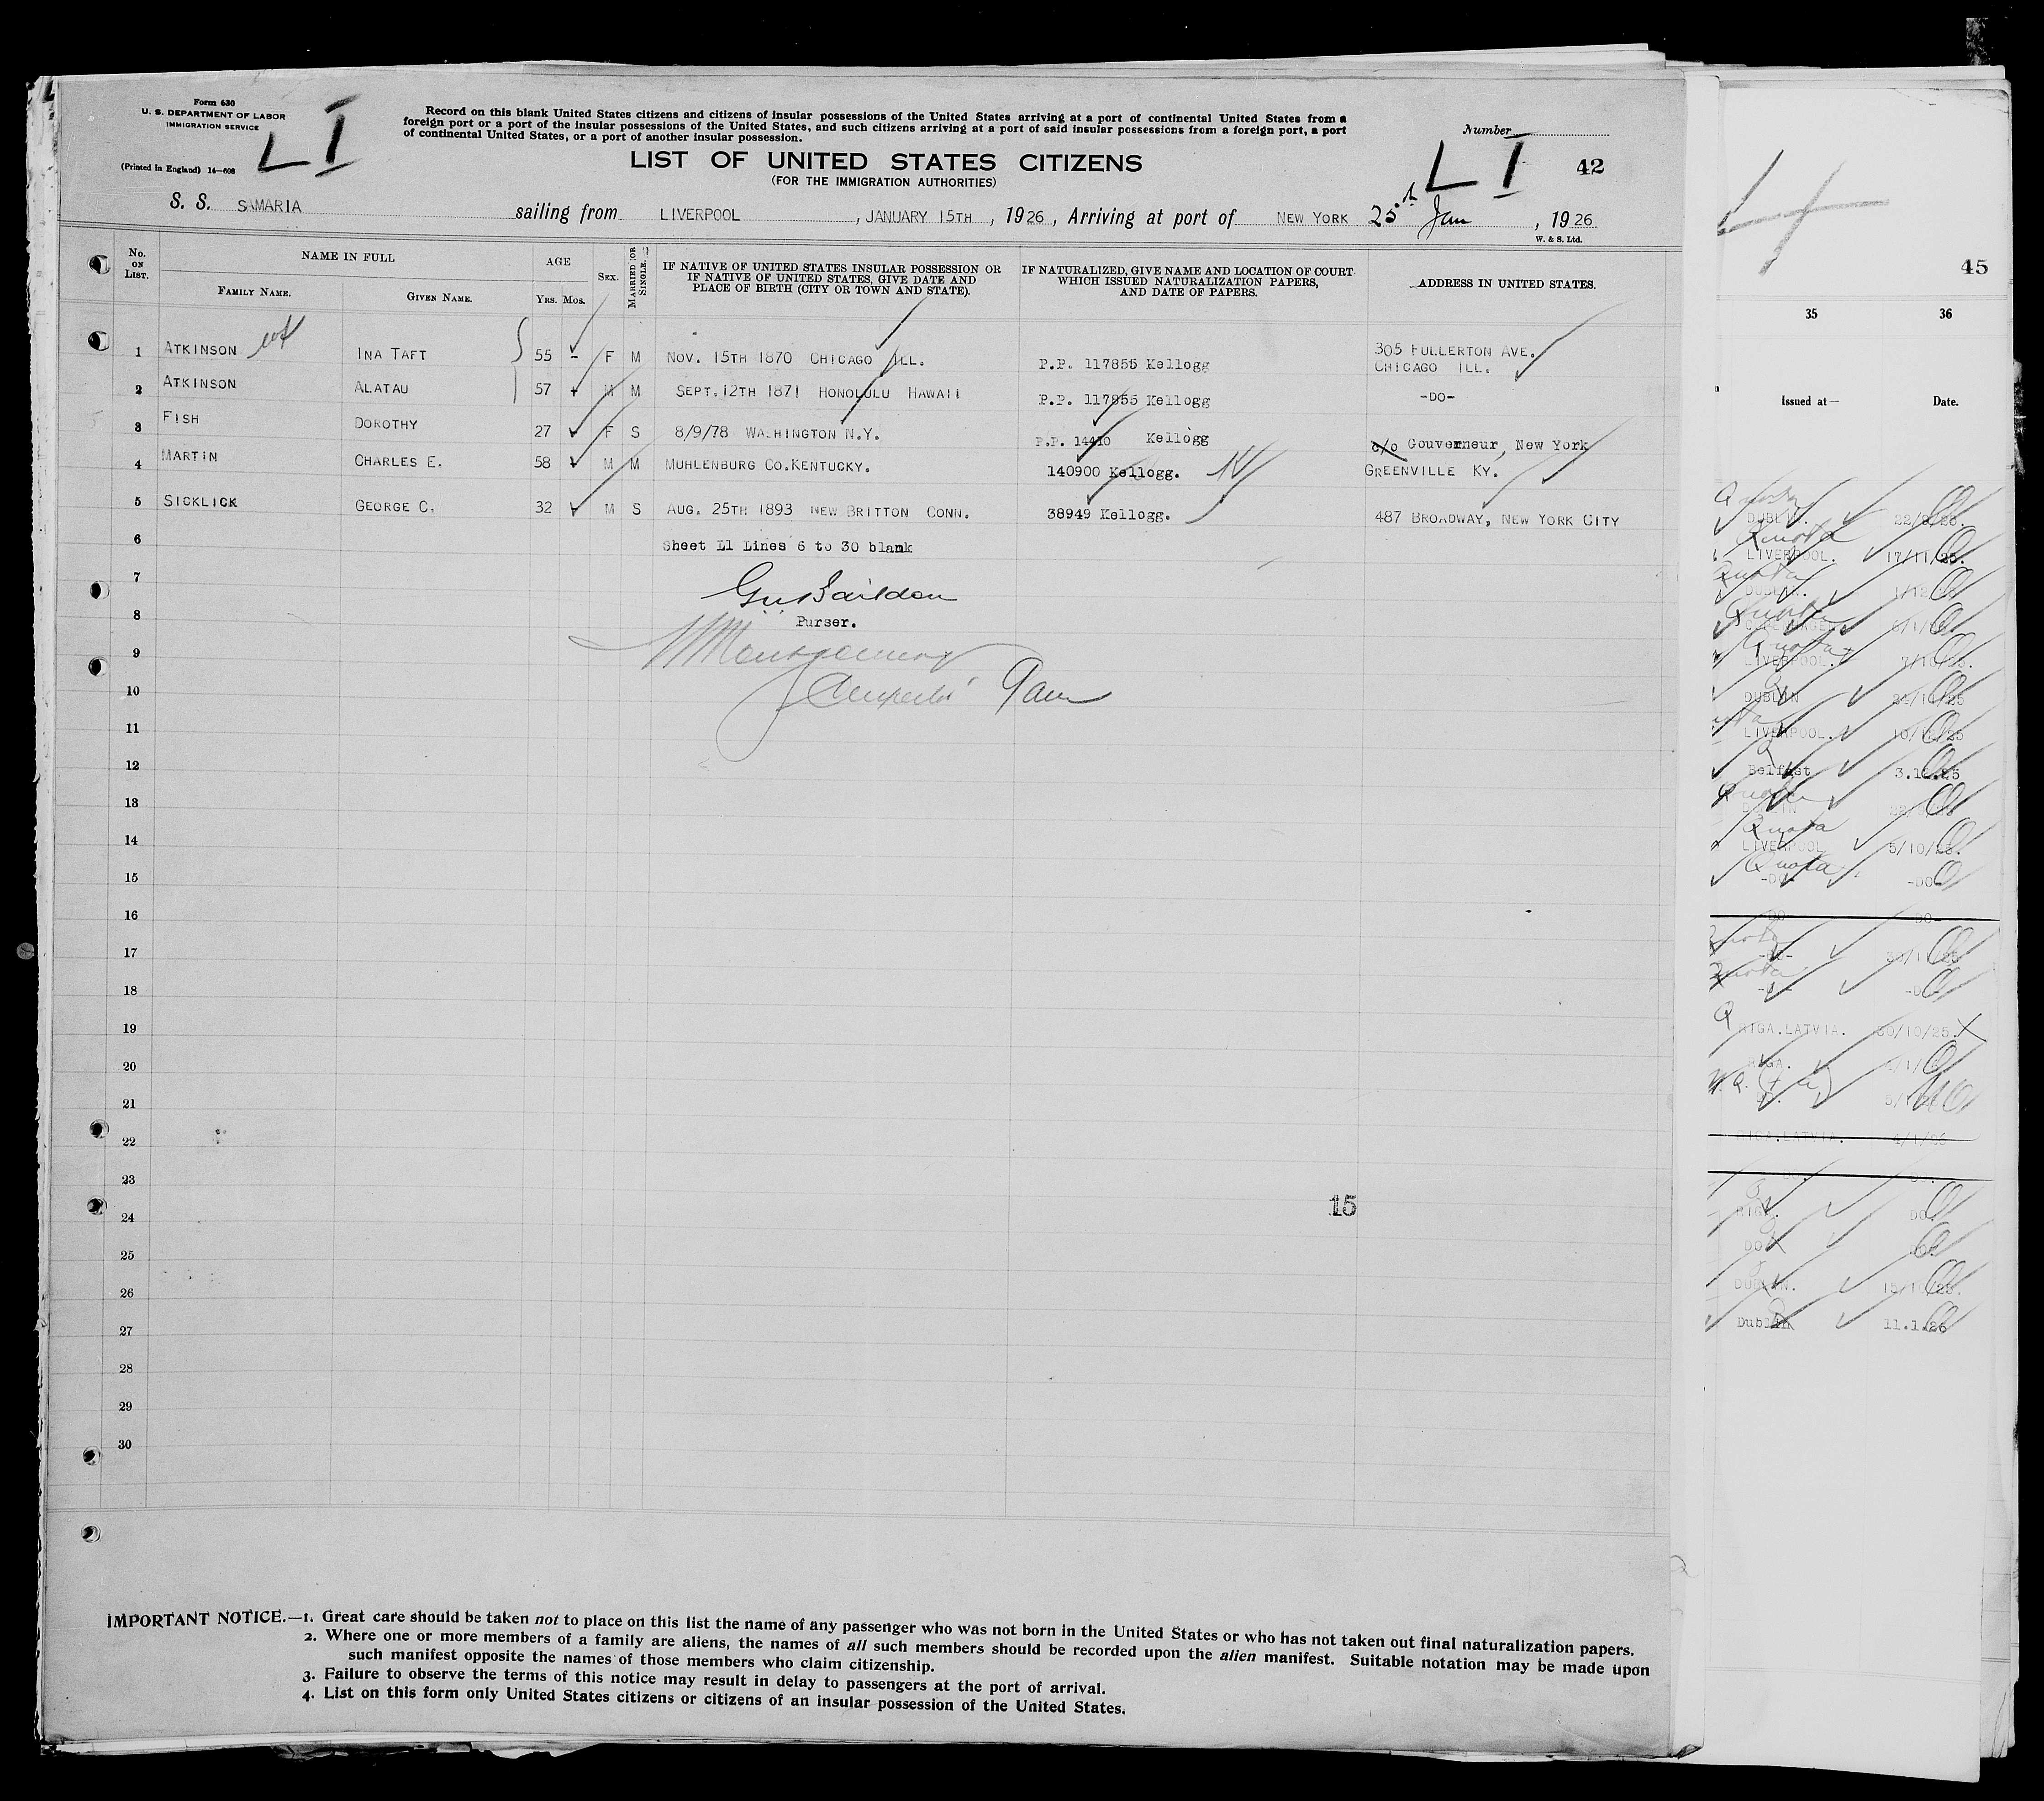 Form 630
U. S. DEPARTMENT OF LABOR
IMMIGRATION SERVICE
(Printed in England) 14—608
LI
Record on this blank United States citizens and citizens of insular possessions of the United States arriving at a port of continental United States from a
foreign port or a port of the insular possessions of the United States, and such citizens arriving at a port of said insular possessions from a foreign port, a port
of continental United States, or a port of another insular possession.
Number
LI 42
LIST OF UNITED STATES CITIZENS
(FOR THE IMMIGRATION AUTHORITIES)
S. S. SAMARIA sailing from LIVERPOOL, JANUARY 15TH, 1926, Arriving at port of NEW YORK 25th Jan, 1926
W. & S. Ltd.
No. ON LIST. NAME IN FULL FAMILY NAME. GIVEN NAME. AGE YRS. MOS. SEX. MARRIED OR SINGLE.
IF NATIVE OF UNITED STATES INSULAR POSSESSION OR
IF NATIVE OF UNITED STATES, GIVE DATE AND
PLACE OF BIRTH (CITY OR TOWN AND STATE).
IF NATURALIZED, GIVE NAME AND LOCATION OF COURT
WHICH ISSUED NATURALIZATION PAPERS,
AND DATE OF PAPERS.
ADDRESS IN UNITED STATES.
1 ATKINSON INA TAFT 55 - F M NOV. 15TH 1870 CHICAGO ILL. P.P. 117855 Kellogg 305 FULLERTON AVE.
CHICAGO ILL.
2 ATKINSON ALATAU 57 M M SEPT. 12TH 1871 HONOLULU HAWAII P.P. 117855 Kellogg -DO-
3 FISH DOROTHY 27 F S 8/9/78 WASHINGTON N.Y. P.P. 14410 Kellogg c/o Gouverneur, New York
4 MARTIN CHARLES E. 58 M M MUHLENBURG CO.KENTUCKY. 140900 Kellogg. GREENVILLE KY.
5 SICKLICK GEORGE C. 32 M S AUG. 25TH 1893 NEW BRITTON CONN. 38949 Kellogg. 487 BROADWAY, NEW YORK CITY
6 Sheet L1 Lines 6 to 30 blank
7
8 Purser.
9
10
11
12
13
14
15
16
17
18
19
20
21
22
23
15
24
25
26
27
28
29
30
IMPORTANT NOTICE.—1. Great care should be taken not to place on this list the name of any passenger who was not born in the United States or who has not taken out final naturalization papers.
2. Where one or more members of a family are aliens, the names of all such members should be recorded upon the alien manifest. Suitable notation may be made upon
such manifest opposite the names of those members who claim citizenship.
3. Failure to observe the terms of this notice may result in delay to passengers at the port of arrival.
4. List on this form only United States citizens or citizens of an insular possession of the United States.
45
35 36
Issued at— Date.
DUBLIN.
LIVERPOOL. 17/11/25.
LIVERPOOL.
DUBLIN
LIVERPOOL.
Belfast
Quota
LIVERPOOL 5/10/25.
Quota
-DO- -DO-
RIGA.LATVIA. 30/10/25.
RIGA.
RIGA.LATVIA.
RIGA. DO.
DO
DUBLIN.
Dublin 11.1.26